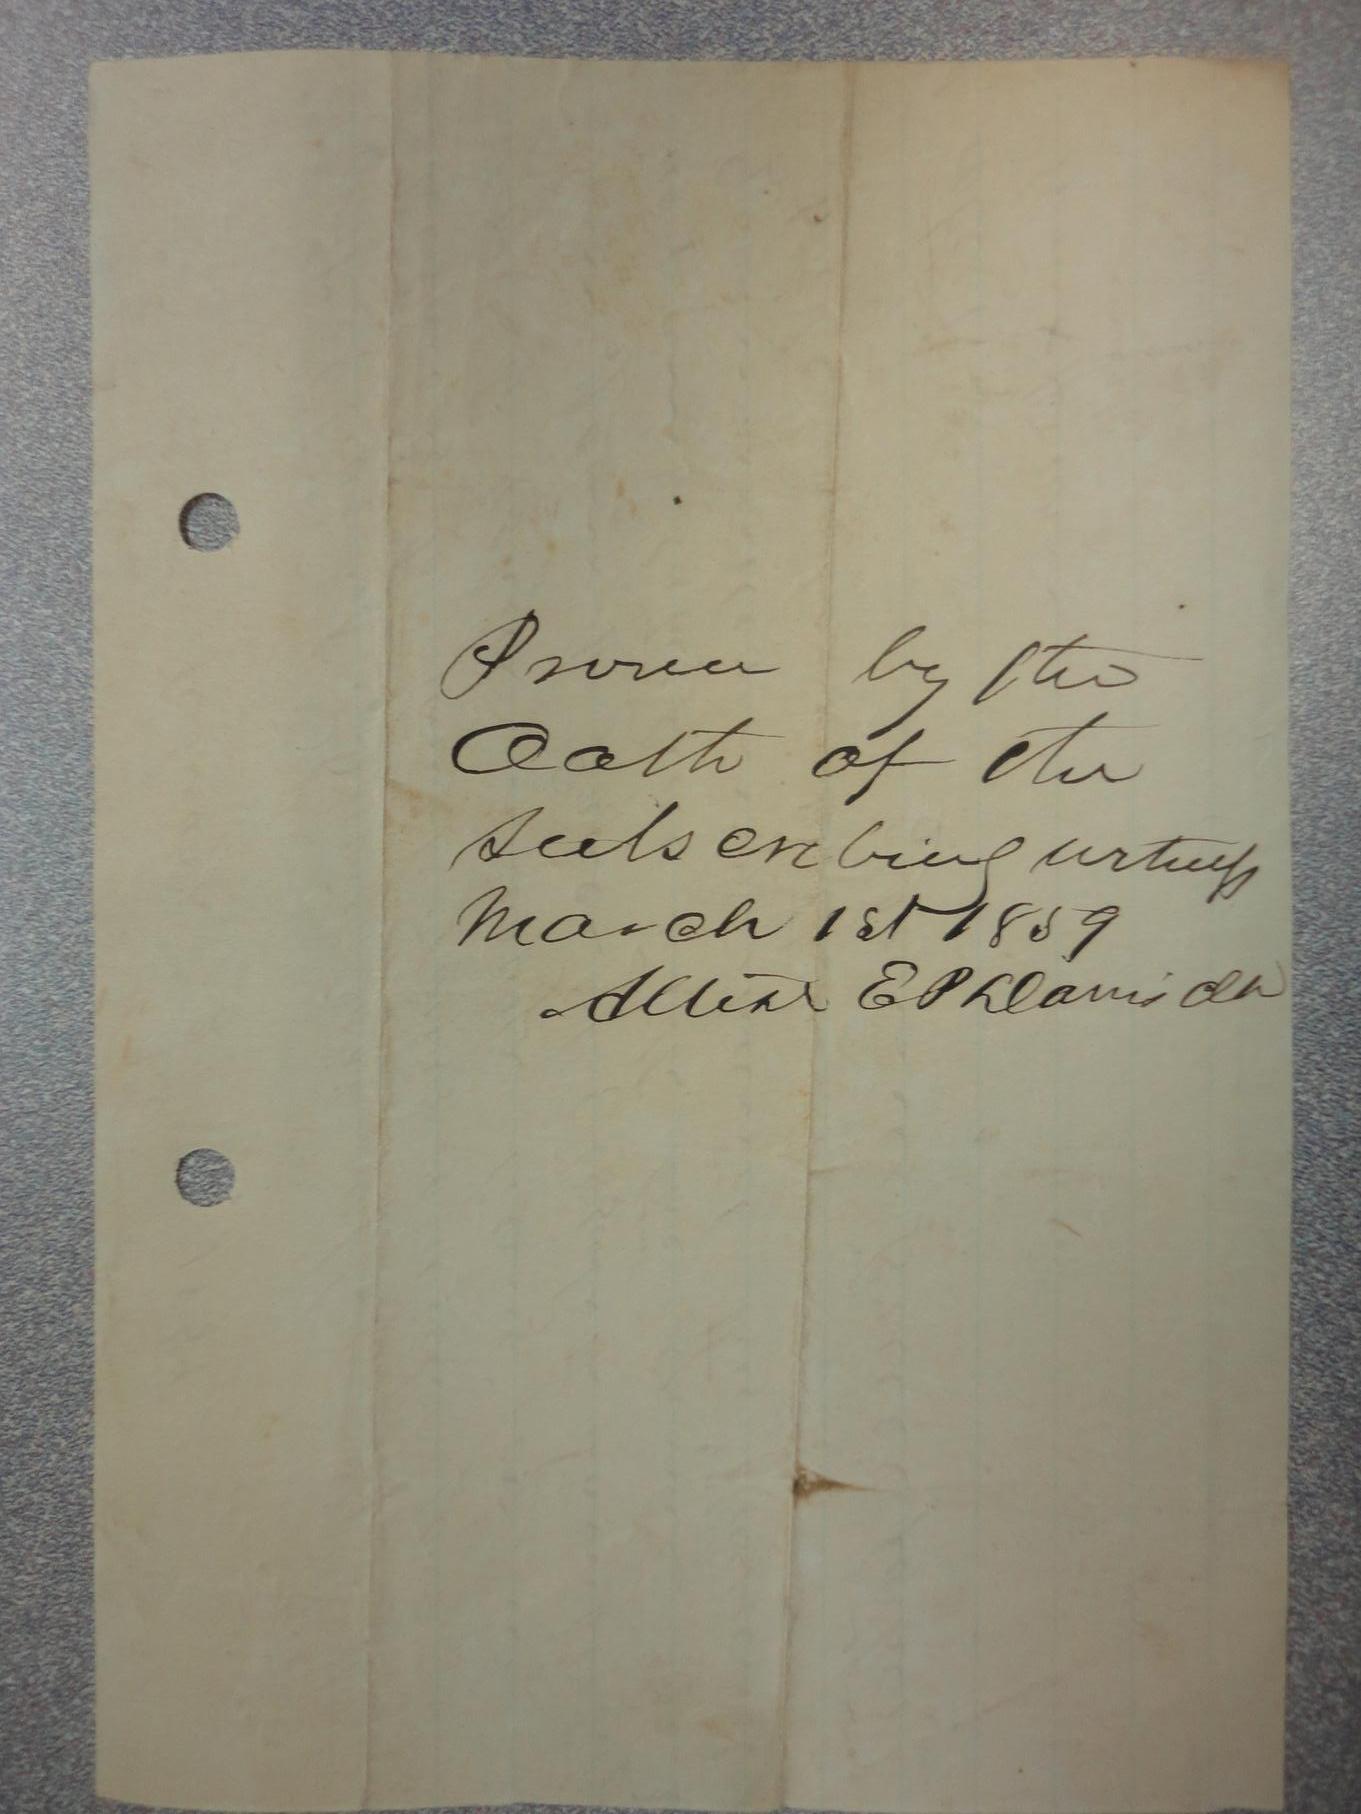 Proven by the
Oath of the
subscribing witness
March 1st 1859
Attest E P H Davis Clk